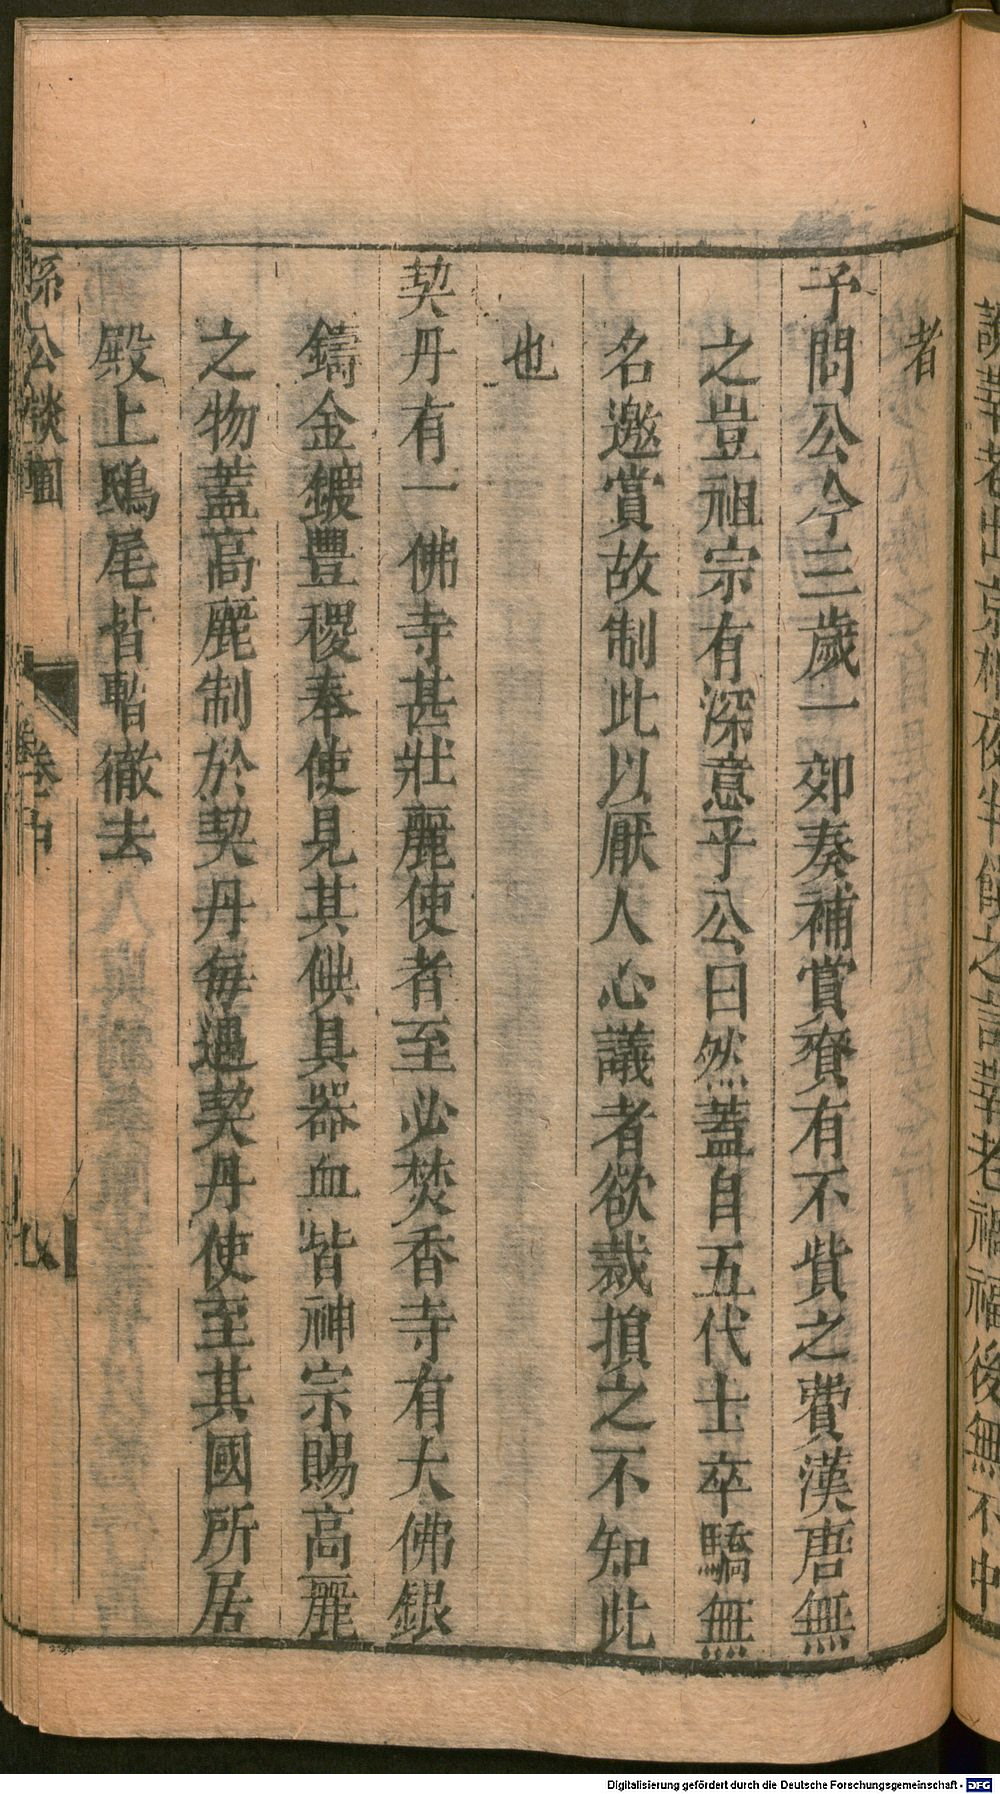 者
予問公今三歲一郊奏補賞賚有不貲之費漢唐無
之豈祖宗有深意乎公曰然蓋自五代士卒驕無
名邀賞故制此以厭人心議者欲裁損之不知此
也
契丹有一佛寺甚壯麗使者至必焚香寺有大佛銀
鑄金鍍豐稷奉使見其供具器血皆神宗賜高麗
之物蓋高麗制於契丹每遇契丹使至其國所居
殿上鴟尾皆暫徹去
孫公談圃
卷中
Digitalisierung gefördert durch die Deutsche Forschungsgemeinschaft - DFG